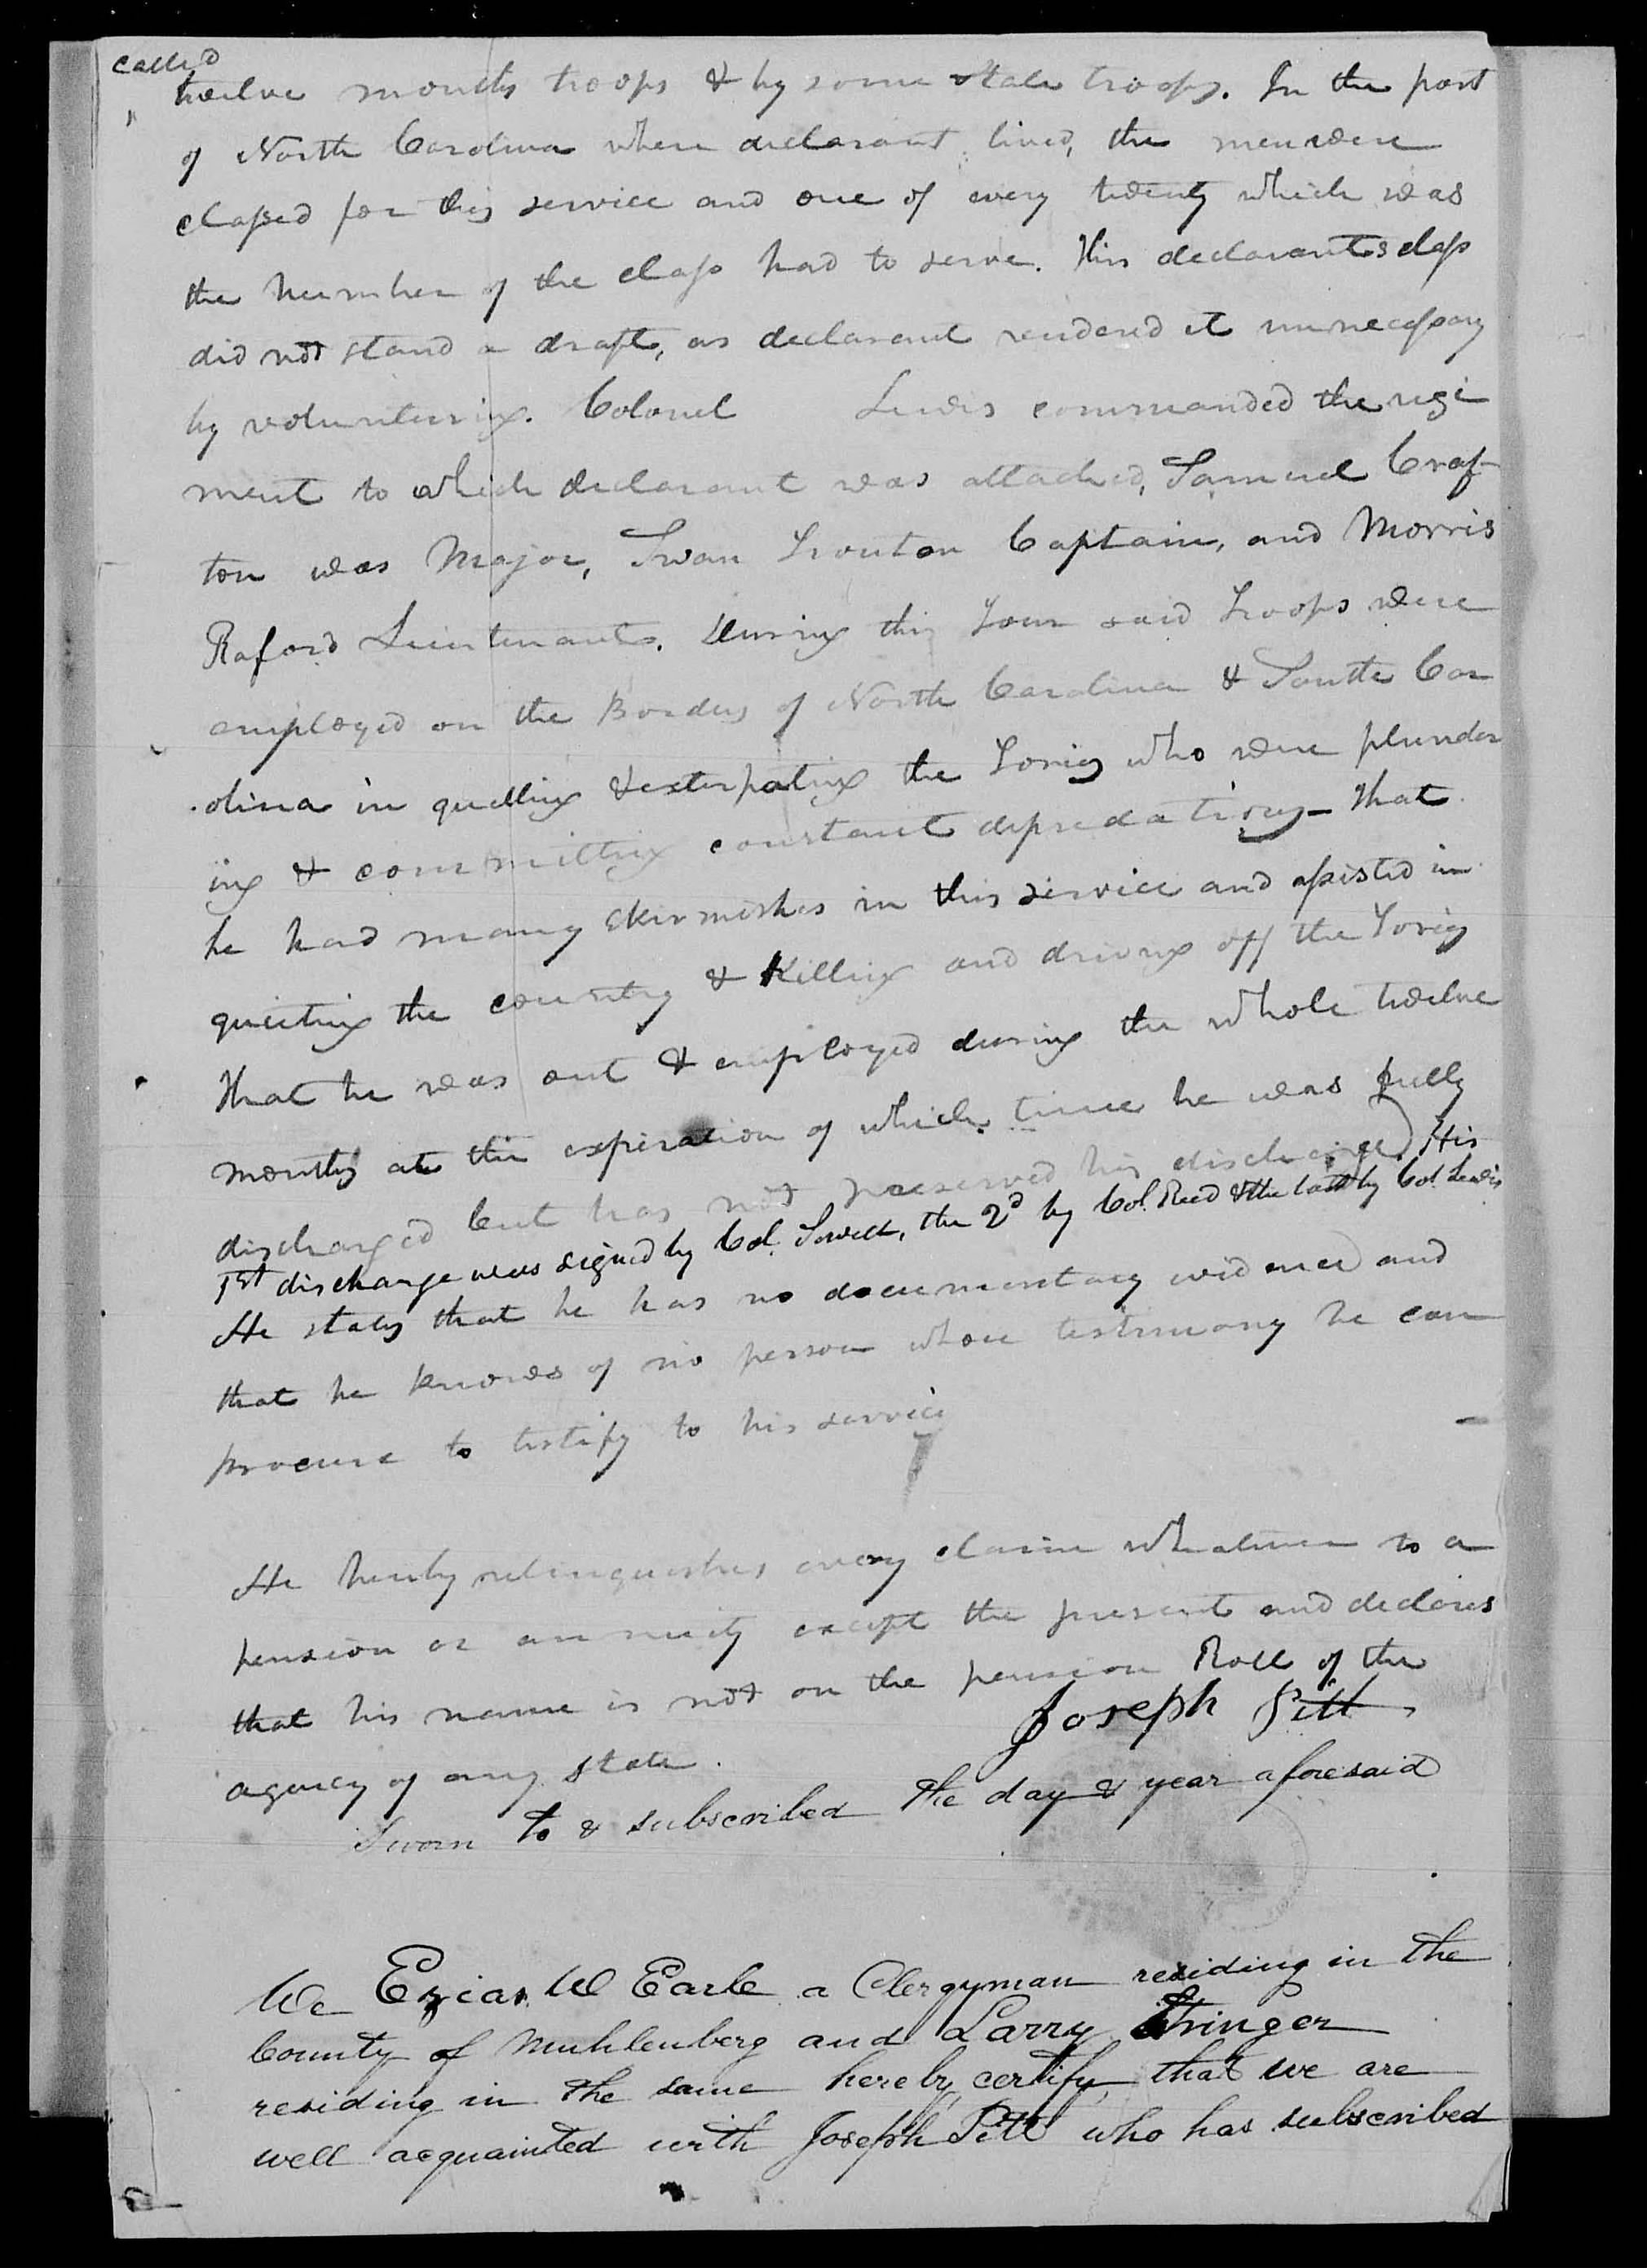 called
twelve months troops & by some State troops. In the part
of North Carolina where declarant lived, the men were
classed for this service and one of every twenty which was
the number of the class had to serve. This declarants class
did not stand a draft, as declarant rendered it unnecessary
by volunteering. Colonel Lewis commanded the regi
ment to which declarant was attached, Samuel Craf-
ton was Major, Swan Trouton Captain, and Morris
Raford Lieutenants. During this Tour said Troops were
employed on the Borders of North Carolina & South Car
olina in quelling & exterpating the Tories who were plunder
ing & committing constant depredations - That
he had many skirmishes in this service and assisted in
quieting the country & Killing and driving off the Tories
That he was out & employed during the whole twelve
months at the expiration of which time he was fully
discharged but has not preserved his discharge) His
1st discharge was signed by Col. Sewell, the 2d by Col. Reed & the last by Col. Lewis
He states that he has no documentary evidence and
that he knows of no person whose testimony he can
procure to testify to his service
He hereby relinquishes every claim whatever to a
pension or annuity except the present and declares
that his name is not on the pension Roll of the
agency of any state.
Joseph Pitt
Sworn to & subscribed the day & year aforesaid
We Ezias W Earle a Clergyman residing in the
County of Muhlenberg and Larry Stringer
residing in the same hereby certify that we are
well acquainted with Joseph Pitt who has subscribed